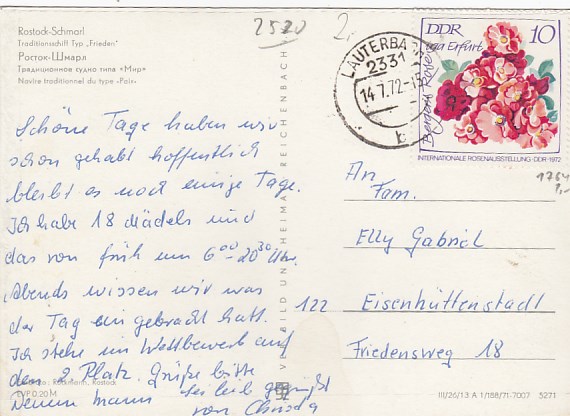 Rostock-Schmarl
Traditionsschiff Typ „Frieden"
Росток-Шмарл
Традиционное судно типа «Мир»
Navire traditionnel du type «Paix»
2520
2,-
LAUTERBACH
2331
14.7.72-15
b
DDR 10
iga Erfurt
Bergers Rose
INTERNATIONALE ROSENAUSSTELLUNG · DDR · 1972
1764
Schöne Tage haben wir
schon gehabt hoffentlich
bleibt es noch einige Tage.
Ich habe 18 Mädels und
das von früh um 6⁰⁰-20³⁰ Uhr.
Abends wissen wir was
der Tag eingebracht hatt.
Ich stehe im Wettbewerb auf
den 2. Platz. Grüße bitte
Deinen Mann sei lieb gegrüßt
von Christa
An
Fam.
Elly Gabriel
122 Eisenhüttenstadt
Friedensweg 18
VEB BILD UND HEIMAT REICHENBACH
Foto: Rostock
EVP 0,20 M
III/26/13 A 1/188/71-7007 5271